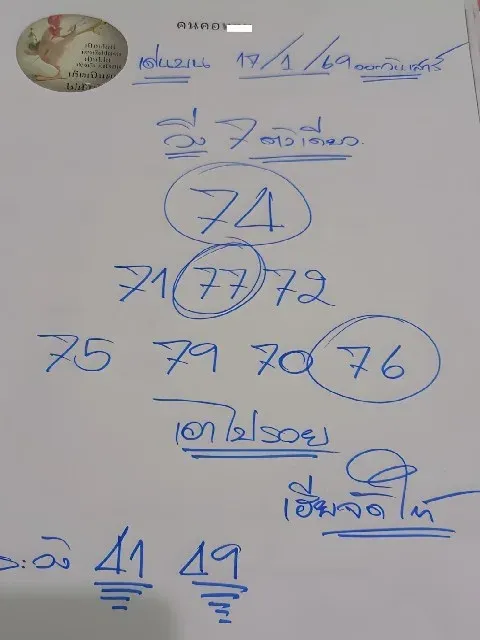 เด่นบน 17/1/69 ออกวันเสาร์
วิ่ง 7 ตัวเดียว
74
71 77 72
75 79 70 76
เอาไปรวย
เฮียจัดให้
ระวัง 41 49